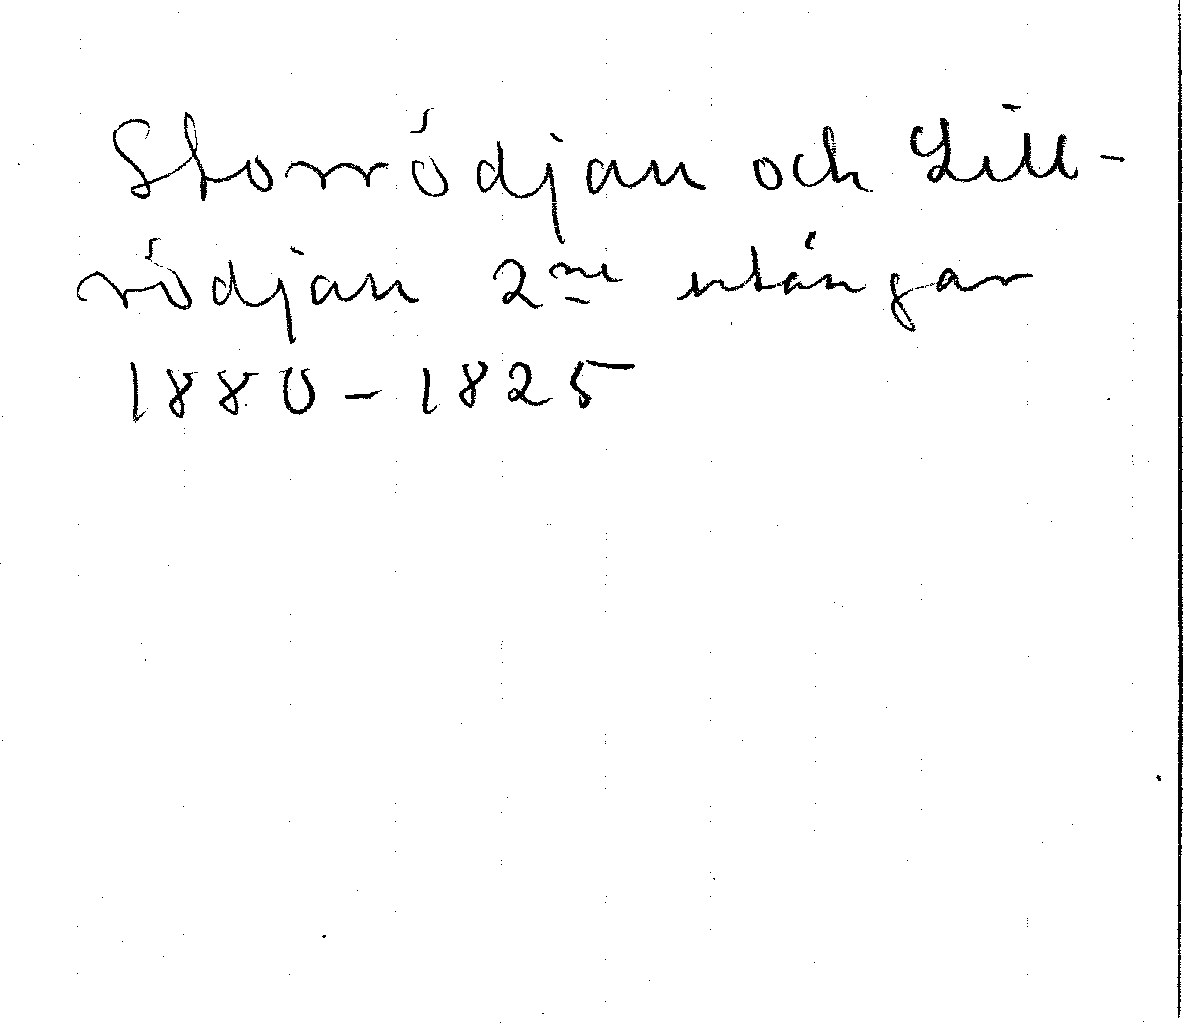 Storrödjan och Lill-
rödjan 2ne utängar
1880-1825